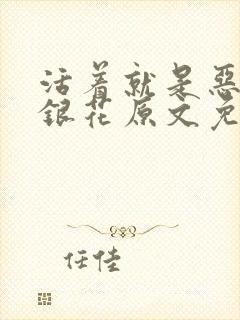 活着就是恶
银花原文免
任佳